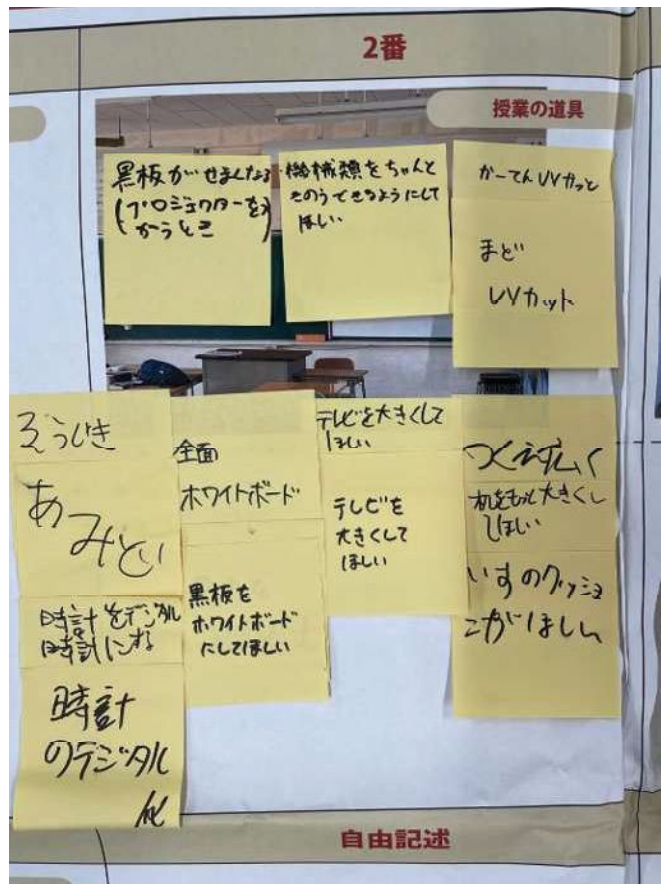 2番
授業の道具
黒板がせまくなる
(プロジェクターを)
つかうとこ
機械類をちゃんと
きのうできるようにして
ほしい
かーてんUVかっと
まど
UVカット
そうじき
あみど
時計をデジタル
時計にする
時計
のデジタル
化
全面
ホワイトボード
黒板を
ホワイトボード
にしてほしい
テレビを大きくして
ほしい
テレビを
大きくして
ほしい
つくえ広く
机をもっと大きくし
てほしい
いすのクッショ
がほしい
自由記述